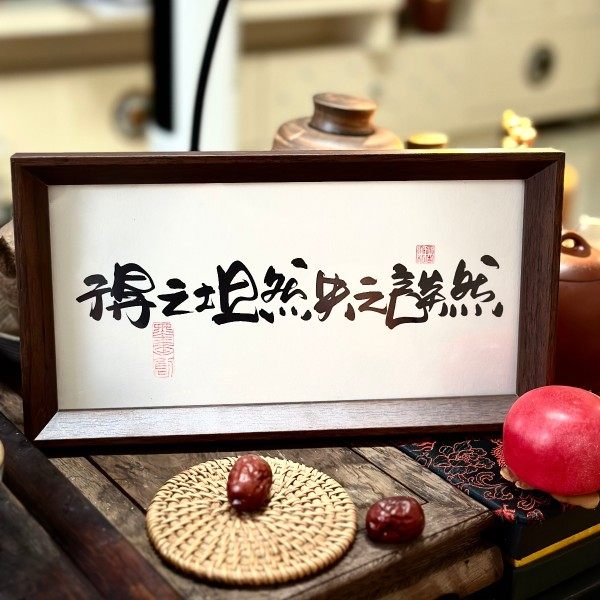 得之坦然失之然